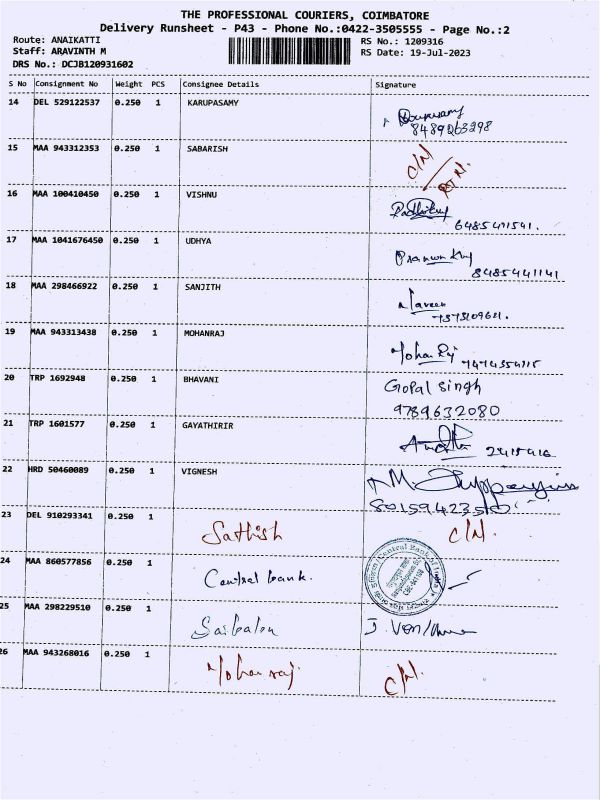 THE PROFESSIONAL COURIERS, COIMBATORE
Delivery Runsheet - P43 - Phone No.:0422-3505555 - Page No.:2
Route: ANAIKATTI RS No.: 1209316
Staff: ARAVINTH M RS Date: 19-Jul-2023
DRS No.: DCJB120931602
S No Consignment No Weight PCS Consignee Details Signature
14 DEL 529122537 0.250 1 KARUPASAMY
8489263298
15 MAA 943312353 0.250 1 SABARISH C/N
RTN.
16 MAA 100410450 0.250 1 VISHNU
17 MAA 1041676450 0.250 1 UDHYA
8485441141
18 MAA 298466922 0.250 1 SANJITH Naveen
19 MAA 943313438 0.250 1 MOHANRAJ Mohan Raj
20 TRP 1692948 0.250 1 BHAVANI Gopal Singh
9789632080
21 TRP 1601577 0.250 1 GAYATHIRIR
22 HRD 50460089 0.250 1 VIGNESH
23 DEL 910293341 0.250 1 Sathish C/N.
24 MAA 860577856 0.250 1 Central bank. Central Bank of India
25 MAA 298229510 0.250 1 Saibalan
26 MAA 943268016 0.250 1 Mohan raj. C/N.